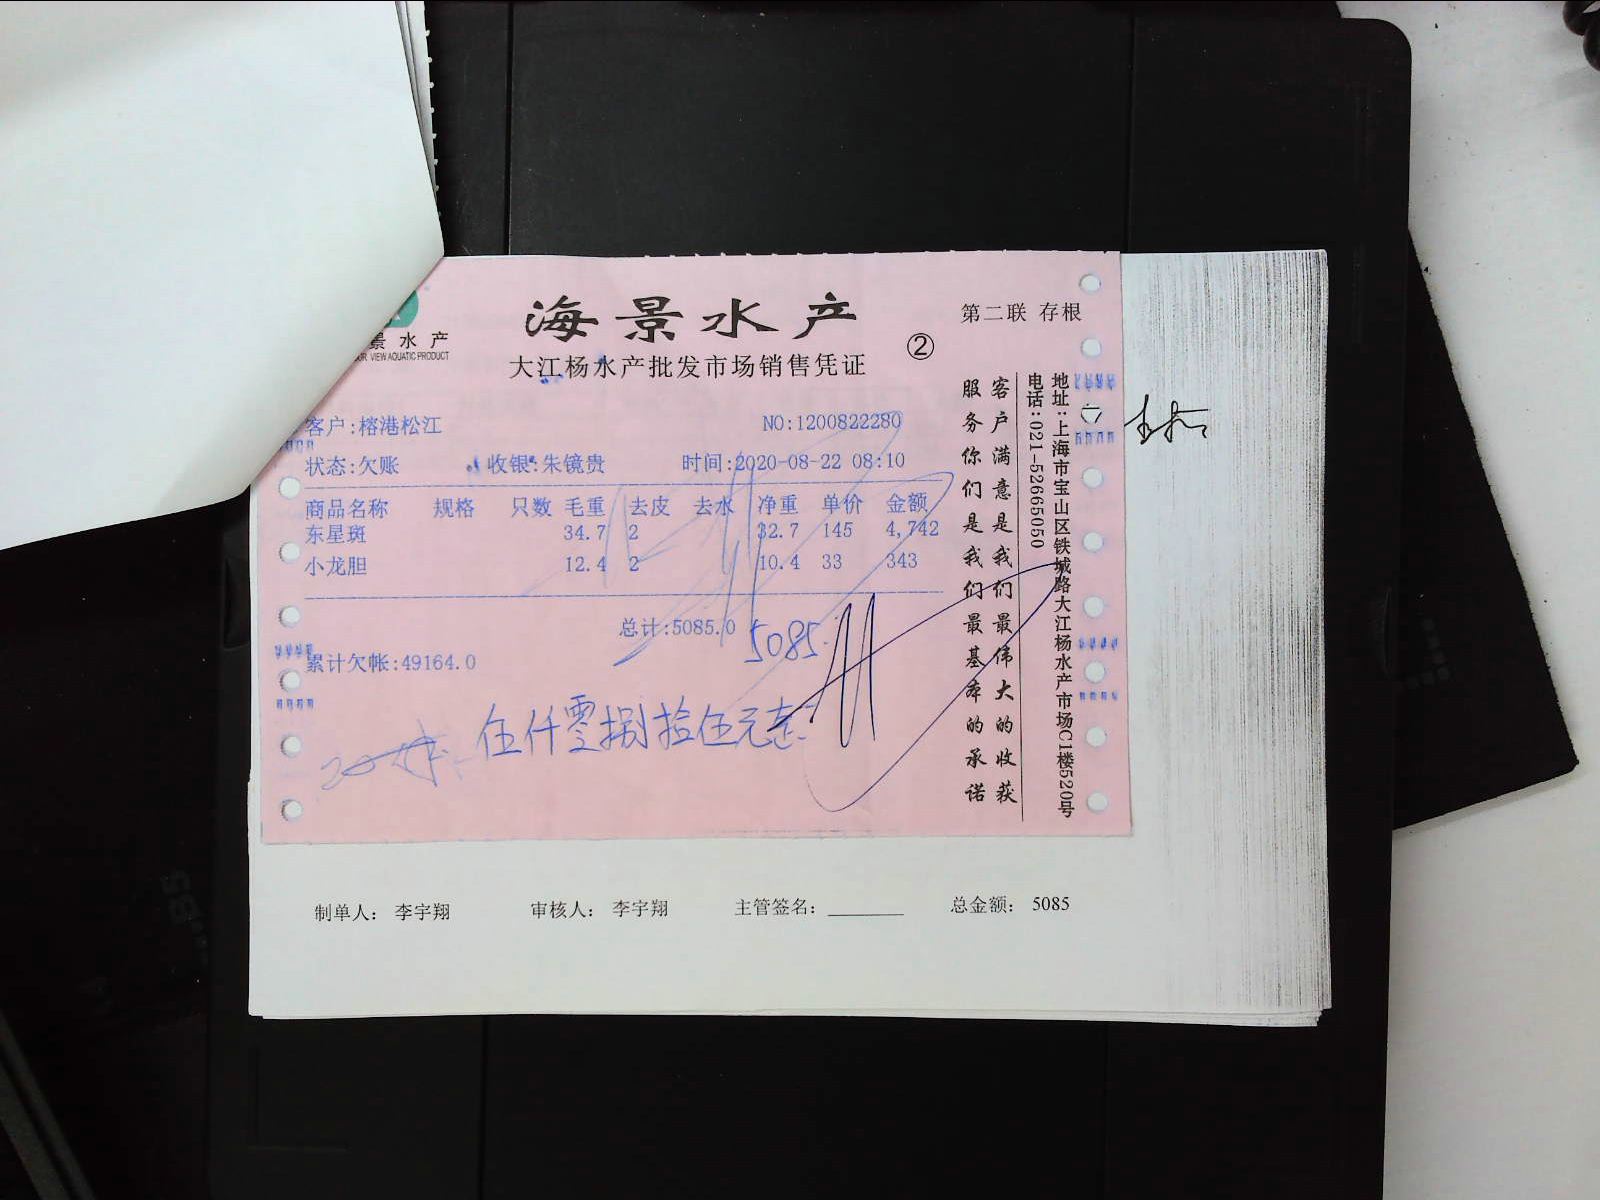 海景水产
第二联 存根
景水产
VIEW AQUATIC PRODUCT
大江杨水产批发市场销售凭证
②
客户:榕港松江 NO:1200822280
状态:欠账 收银:朱镜贵 时间:2020-08-22 08:10
商品名称 规格 只数 毛重 去皮 去水 净重 单价 金额
东星斑 34.7 2 32.7 145 4,742
小龙胆 12.4 2 10.4 33 343
总计:5085.0
5085
累计欠帐:49164.0
伍仟零捌拾伍元
客户满意是我们最伟大的收获
服务你们是我们最基本的承诺
地址:上海市宝山区铁城路大江杨水产市场C1楼520号
电话:021-52665050
制单人: 李宇翔 审核人: 李宇翔 主管签名: 总金额: 5085